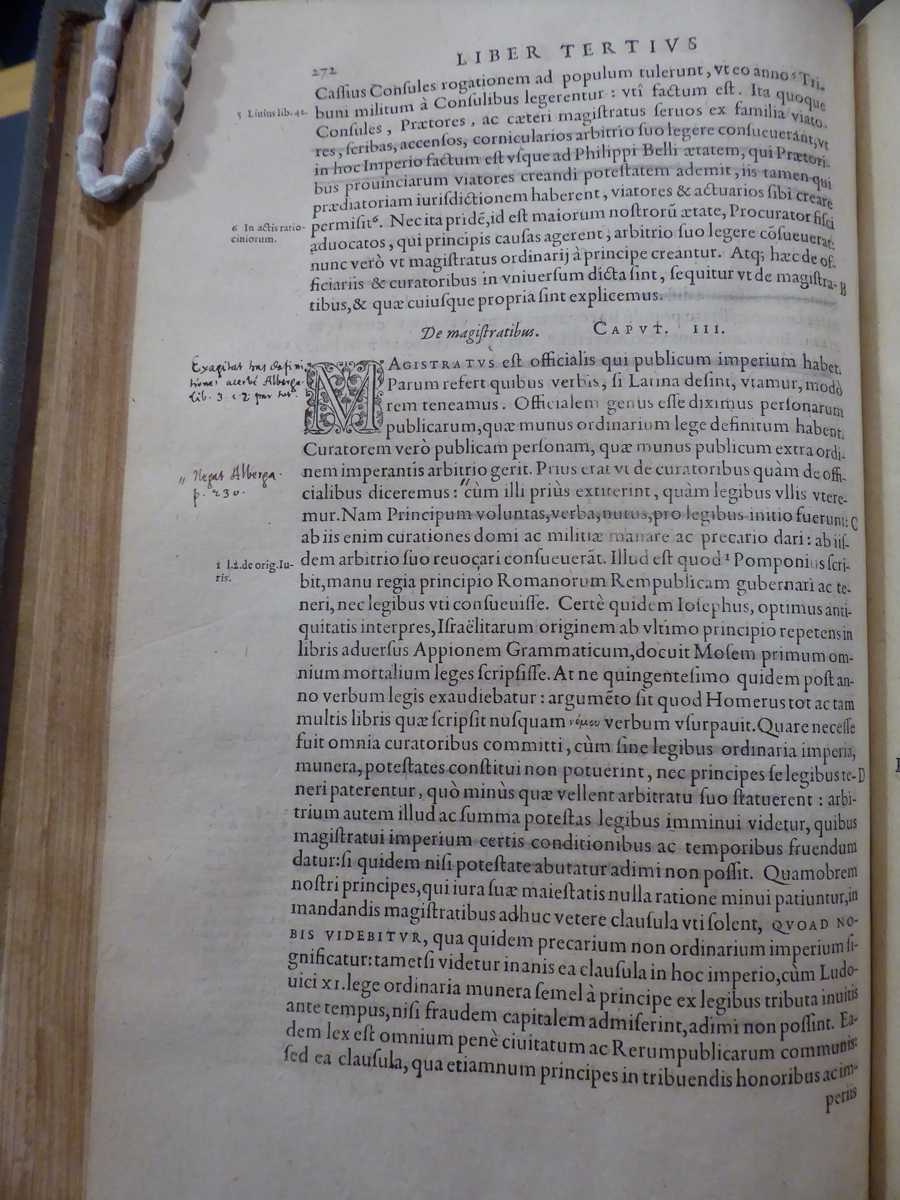 272
LIBER TERTIVS
Caſſius Conſules rogationem ad populum tulerunt, vt eo anno ⁵ Tri-
buni militum à Conſulibus legerentur : vti factum eſt. Ita quoque
5 Liuius lib. 42.
Conſules, Prætores, ac cæteri magiſtratus ſeruos ex familia viato-
res, ſcribas, accenſos, cornicularios arbitrio ſuo legere conſueuerāt, vt
in hoc Imperio factum eſt vſque ad Philippi Belli ætatem, qui Prætori-
bus prouinciarum viatores creandi poteſtatem ademit, iis tamen qui
prædiatoriam iurisdictionem haberent, viatores & actuarios ſibi creare
6 In actis ratio-
ciniorum.
permiſit⁶. Nec ita pridē, id eſt maiorum noſtrorū ætate, Procurator fiſci
aduocatos, qui principis cauſas agerent, arbitrio ſuo legere cōſueuerat:
nunc verò vt magiſtratus ordinarij à principe creantur. Atq; hæc de of-
ficiariis & curatoribus in vniuerſum dicta ſint, ſequitur vt de magiſtra- B
tibus, & quæ cuiuſque propria ſint explicemus.
De magiſtratibus. CAPVT. III.
Exagitat has defini
tiones acerbè Alberga.
lib. 3. c. 2.
MAGISTRATVS eſt officialis qui publicum imperium habet.
Parum refert quibus verbis, ſi Latina deſint, vtamur, modò
rem teneamus. Officialem genus eſſe diximus perſonarum
publicarum, quæ munus ordinarium lege definitum habent.
Curatorem verò publicam perſonam, quæ munus publicum extra ordi-
nem imperantis arbitrio gerit. Prius erat vt de curatoribus quàm de offi-
" Negat Alberga.
p. 230.
cialibus diceremus : "cùm illi priùs extiterint, quàm legibus vllis vtere-
mur. Nam Principum voluntas, verba, nutus, pro legibus initio fuerunt: C
ab iis enim curationes domi ac militiæ manare ac precario dari : ab iiſ-
dem arbitrio ſuo reuocari conſueuerāt. Illud eſt quod ¹ Pomponius ſcri-
1 l.2.de orig.Iu-
ris.
bit, manu regia principio Romanorum Rempublicam gubernari ac te-
neri, nec legibus vti conſueuiſſe. Certè quidem Ioſephus, optimus anti-
quitatis interpres, Iſraëlitarum originem ab vltimo principio repetens in
libris aduerſus Appionem Grammaticum, docuit Moſem primum om-
nium mortalium leges ſcripſiſſe. At ne quingenteſimo quidem poſt an-
no verbum legis exaudiebatur : argumēto ſit quod Homerus tot ac tam
multis libris quæ ſcripſit nuſquam νόμου verbum vſurpauit. Quare neceſſe
fuit omnia curatoribus committi, cùm ſine legibus ordinaria imperia,
munera, poteſtates conſtitui non potuerint, nec principes ſe legibus te- D
neri paterentur, quò minùs quæ vellent arbitratu ſuo ſtatuerent : arbi-
trium autem illud ac ſumma poteſtas legibus imminui videtur, quibus
magiſtratui imperium certis conditionibus ac temporibus fruendum
datur: ſi quidem niſi poteſtate abutatur adimi non poſſit. Quamobrem
noſtri principes, qui iura ſuæ maieſtatis nulla ratione minui patiuntur, in
mandandis magiſtratibus adhuc vetere clauſula vti ſolent, QVOAD NO-
BIS VIDEBITVR, qua quidem precarium non ordinarium imperium ſi-
gnificatur: tametſi videtur inanis ea clauſula in hoc imperio, cùm Ludo-
uici XI. lege ordinaria munera ſemel à principe ex legibus tributa inuitis
ante tempus, niſi fraudem capitalem admiſerint, adimi non poſſint. Ea-
dem lex eſt omnium penè ciuitatum ac Rerumpublicarum communis:
ſed ea clauſula, qua etiamnum principes in tribuendis honoribus ac im-
periis